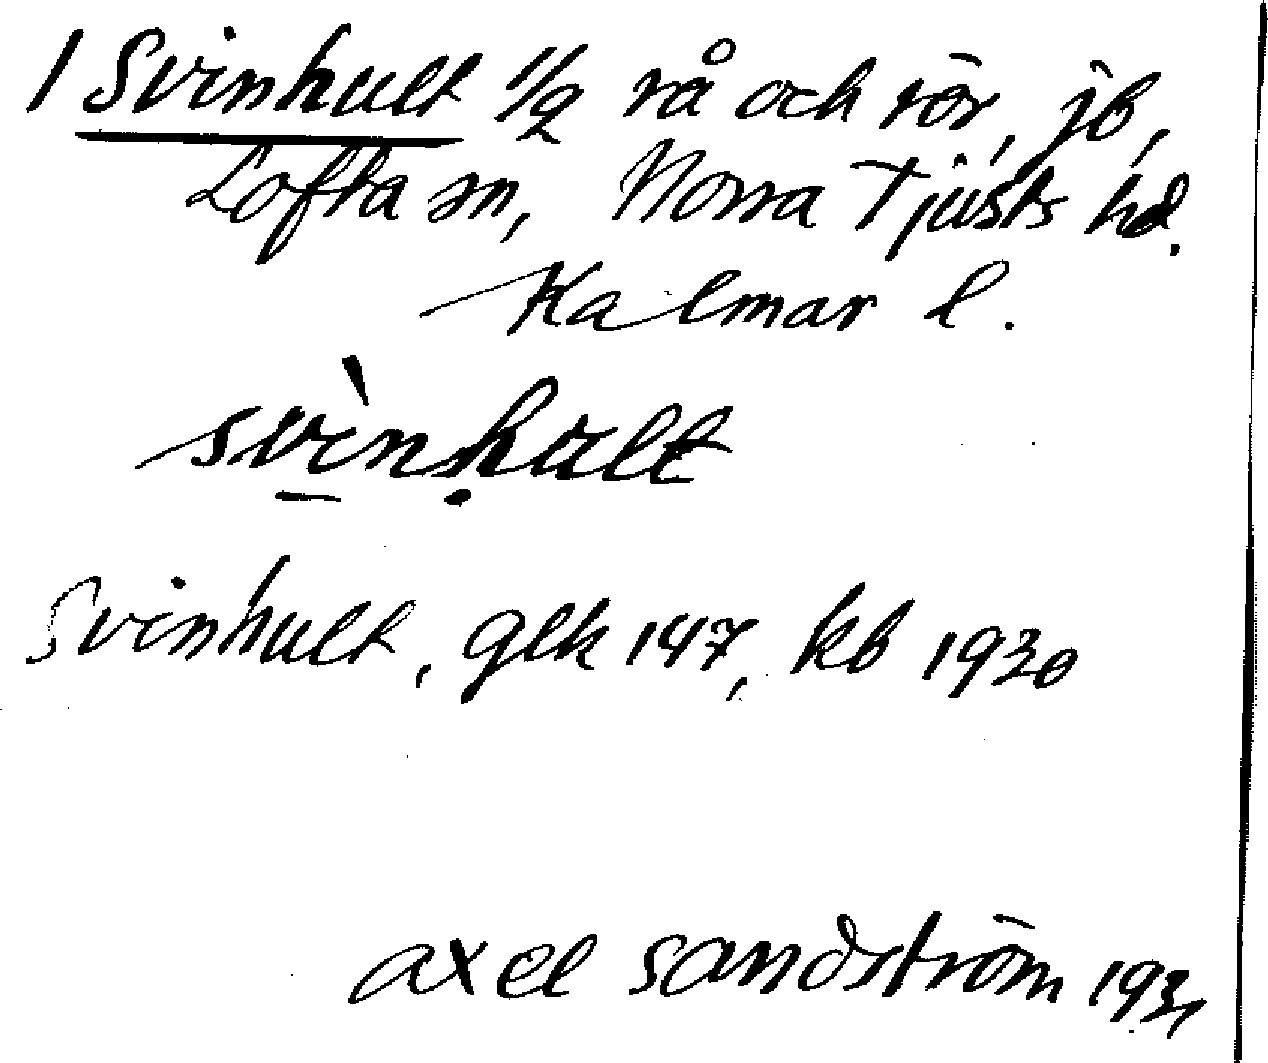 1 Svinhult 1/2 rå och rör, jb,
Lofta sn, Norra Tjusts hd.
Kalmar l.
svì̠nḥult
Svinhult, gek 147, kb 1930
Axel Sandström 1931